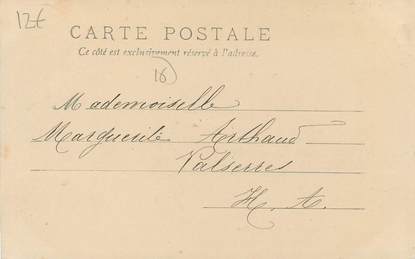 12€
CARTE POSTALE
Ce côté est exclusivement réservé à l'adresse.
16
Mademoiselle
Marguerite Arthaud
Valserres
H. A.